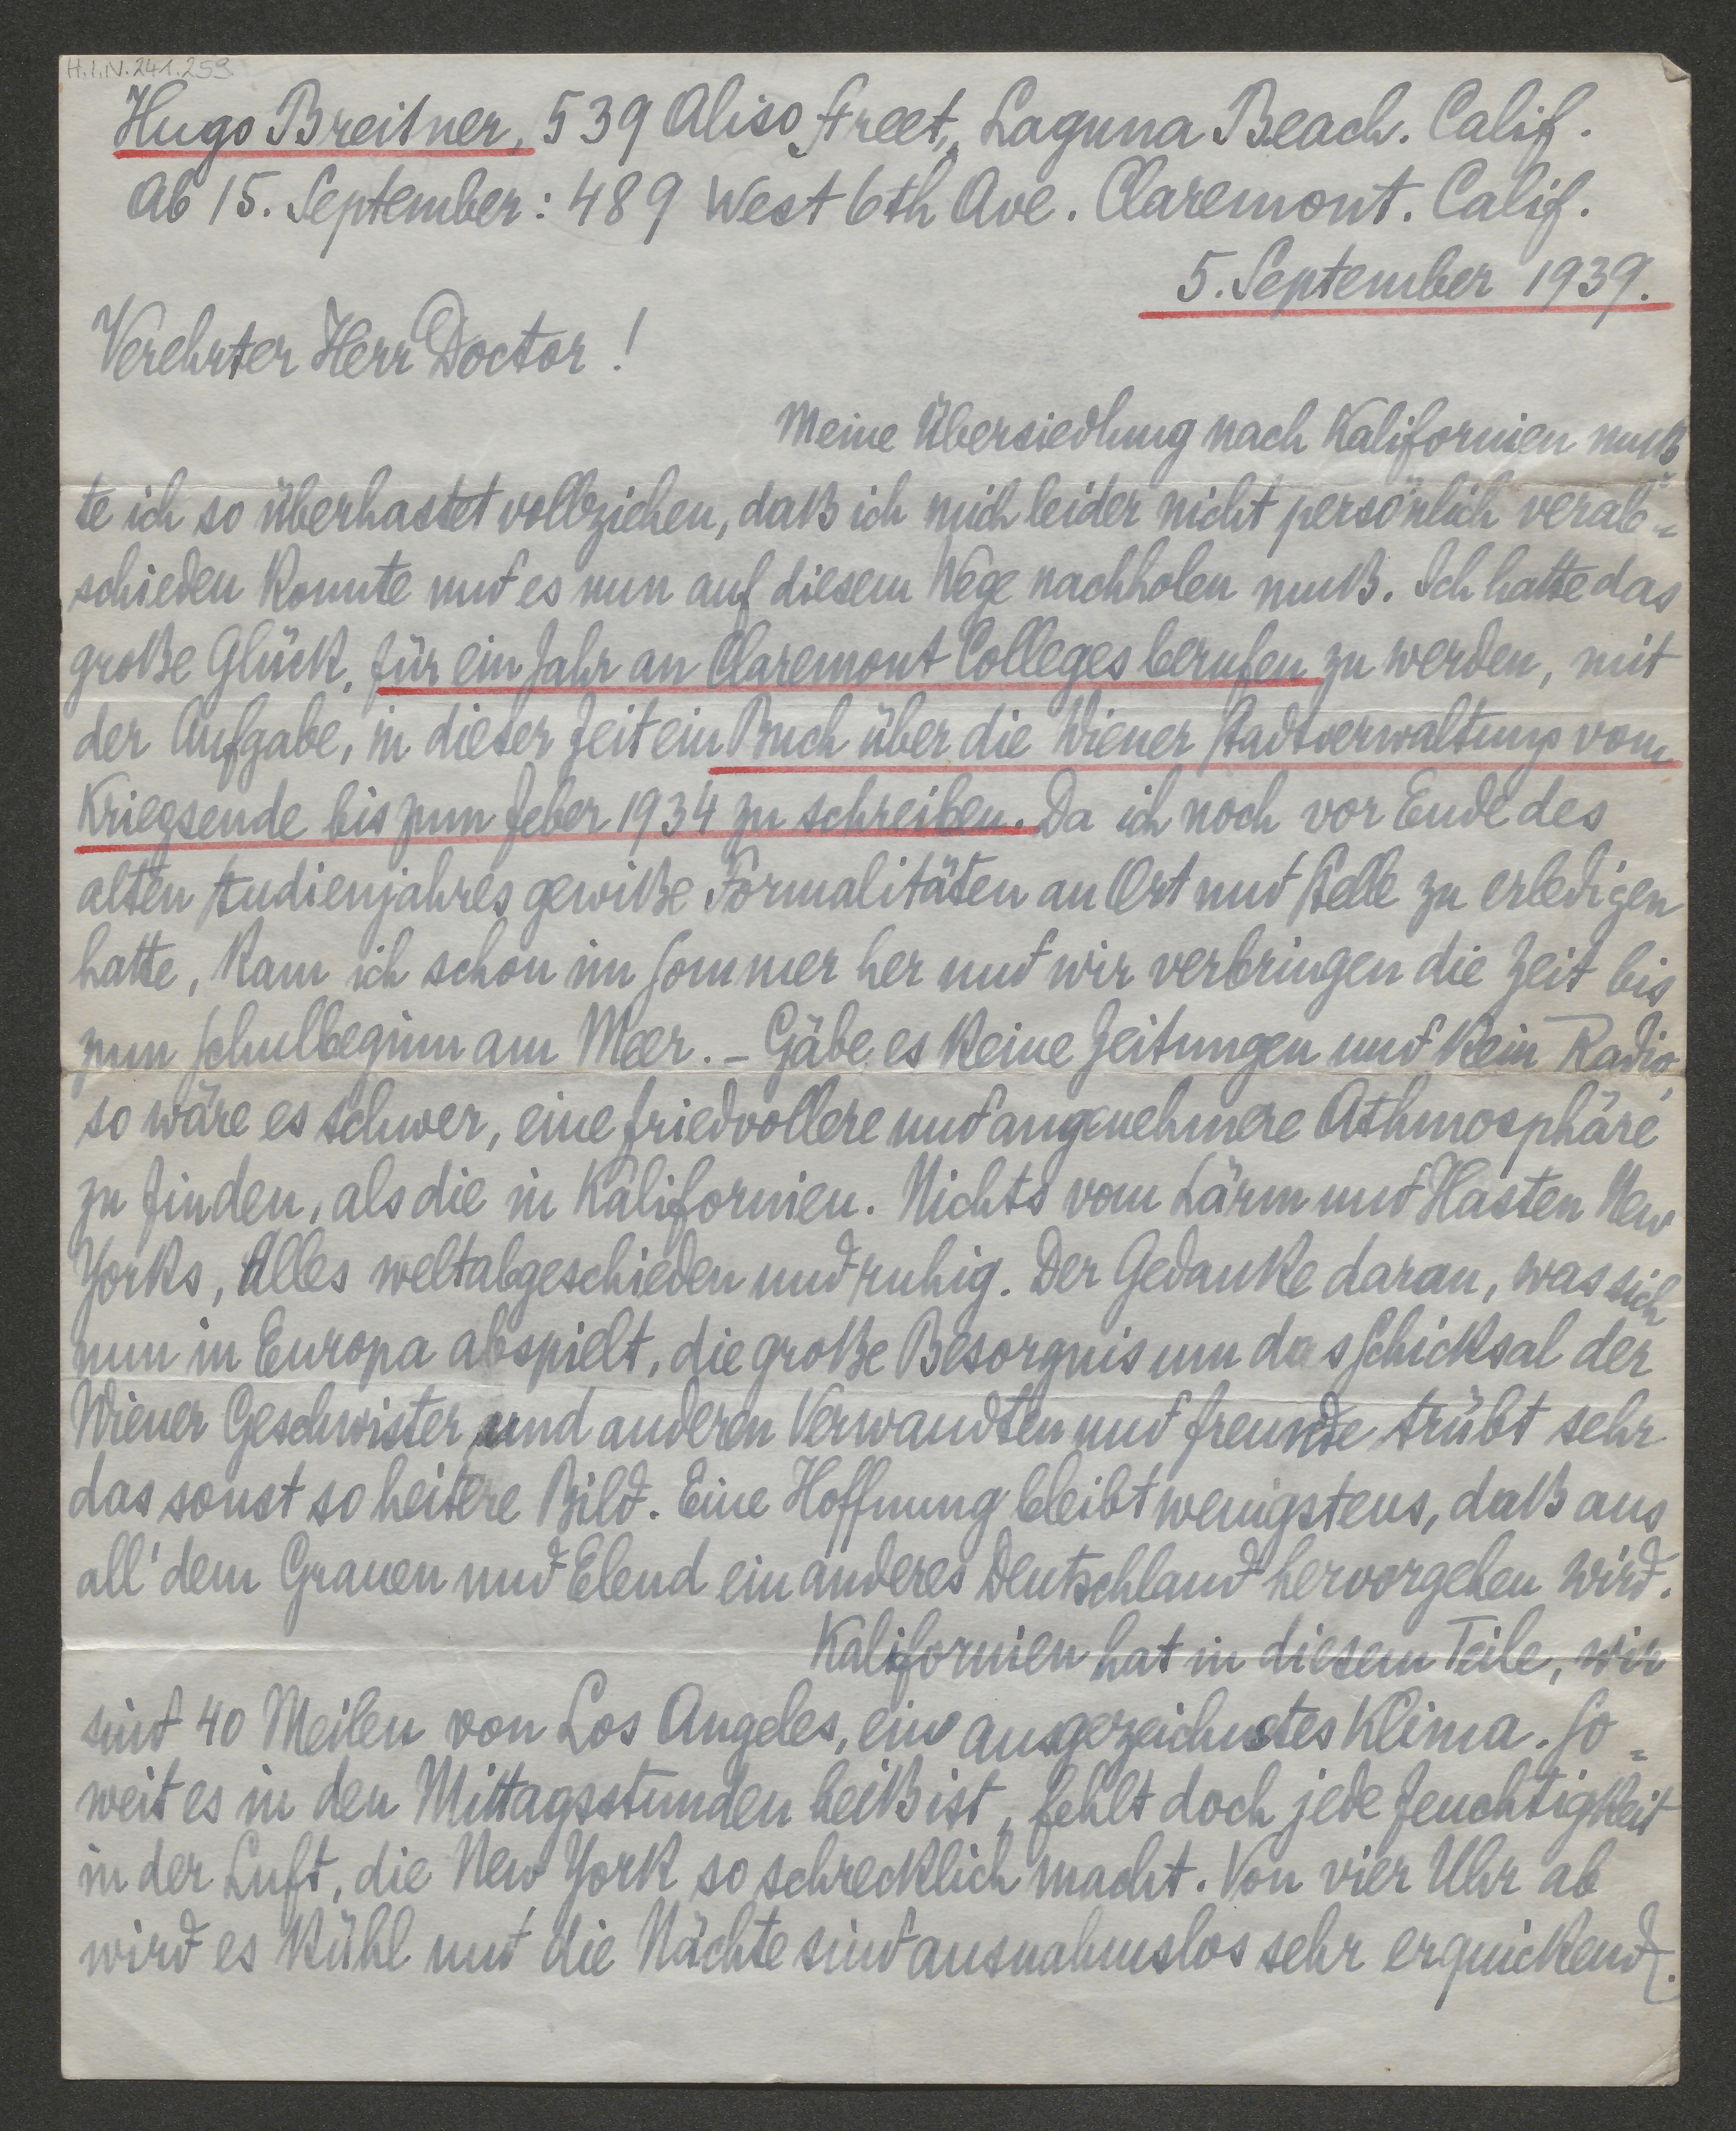 H.I.N. 241.259
Hugo Breitner, 539 Aliso Street, Laguna Beach. Calif.
Ab 15. September: 489 West 6th Ave. Claremont. Calif.
5. September 1939.
Verehrter Herr Doctor!
Meine Übersiedlung nach Kalifornien muß
te ich so überhastet vollziehen, daß ich mich leider nicht persönlich verab=
schieden konnte und es nun auf diesem Wege nachholen muß. Ich hatte das
große Glück, für ein Jahr an Claremont Colleges berufen zu werden, mit
der Aufgabe, in dieser Zeit ein Buch über die Wiener Stadtverwaltung vom
Kriegsende bis zum Feber 1934 zu schreiben. Da ich noch vor Ende des
alten Studienjahres gewiße Formalitäten an Ort und Stelle zu erledigen
hatte, kam ich schon im Sommer her und wir verbringen die Zeit bis
zum Schulbeginn am Meer. – Gäbe es keine Zeitungen und kein Radio,
so wäre es schwer, eine friedvollere und angenehmere Athmosphäre
zu finden, als die in Kalifornien. Nichts vom Lärm und Hasten New
Yorks, Alles weltabgeschieden und ruhig. Der Gedanke daran, was sich
nun in Europa abspielt, die große Besorgnis um das Schicksal der
Wiener Geschwister und anderen Verwandten und Freunde trübt sehr
das sonst so heitere Bild. Eine Hoffnung bleibt wenigstens, daß aus
all' dem Grauen und Elend ein anderes Deutschland hervorgehen wird.
Kalifornien hat in diesem Teile, wir
sind 40 Meilen von Los Angeles, ein ausgezeichnetes Klima. So=
weit es in den Mittagsstunden heiß ist, fehlt doch jede Feuchtigkeit
in der Luft, die New York so schrecklich macht. Von vier Uhr ab
wird es kühl und die Nächte sind ausnahmslos sehr erquickend.